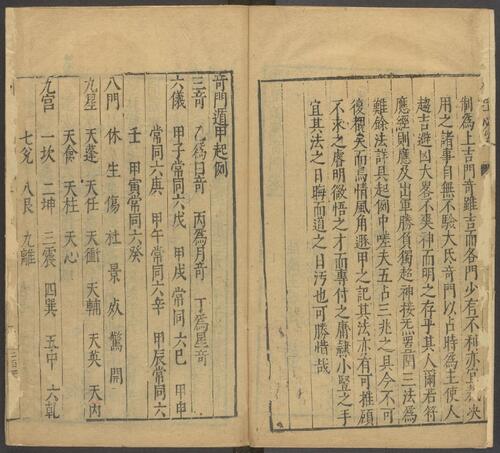 制為上吉門竒雖吉而各門少有不利亦
用之諸事自無不驗大氐竒門以占時為主使人
趨吉避凶大畧不爽神而明之存乎其人爾若符
應經則應及出軍勝負獨超神接炁置閏三法為
雖餘法詳具起例中嗟夫五占三兆之具今不可
復覩矣而鳥情風角遯甲之記其法亦有可推顧
不求之虗明徹悟之才而専付之庸隸小竪之手
宜其法之日晦而道之日汚也可勝惜哉
竒門遁甲起例
三竒　乙為日竒　丙為月竒　丁為星竒
六儀　甲子常同六戊　甲戌常同六己　甲申
常同六庚　甲午常同六辛　甲辰常同六
壬　甲寅常同六癸
八門　休　生　傷　杜　景　死　驚　開
九星　天蓬　天任　天衝　天輔　天英　天芮
天禽　天柱　天心
九宫　一坎　二坤　三震　四巽　五中　六乾
七兌　八艮　九離